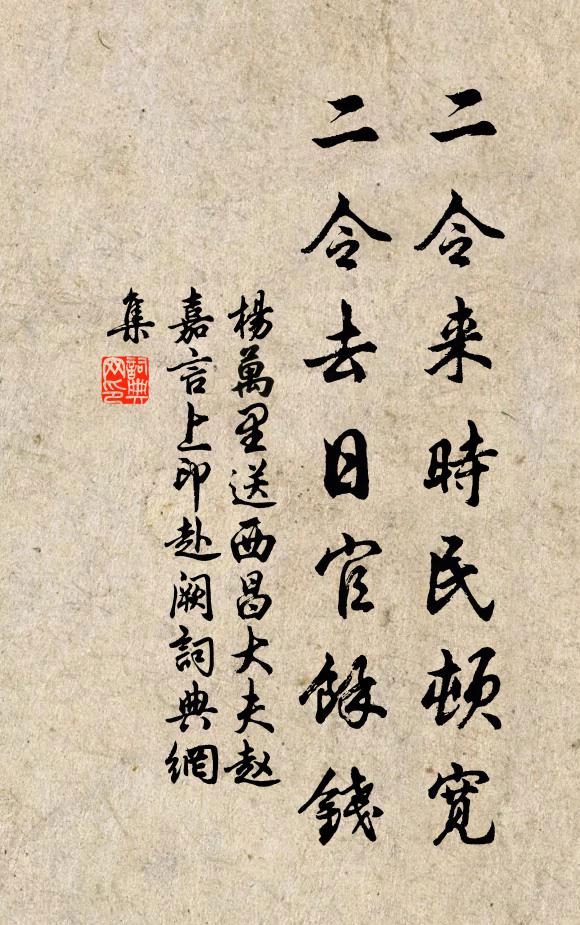 二令来時民頓寬
二令去日官餘錢
楊萬里送西昌大夫赵
嘉言上印赴阙詞典網
集
詞典网印